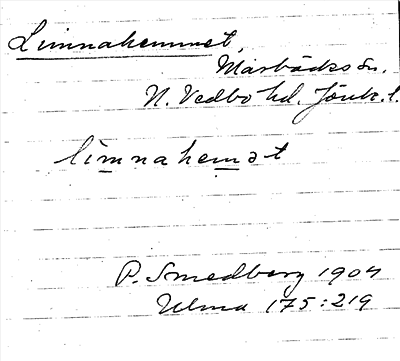 Linnahemmet,
Marbäcks sn.
N. Vedbo hd. Jönk. l.
limnahemət
P. Smedberg 1904
Ulma 175:219